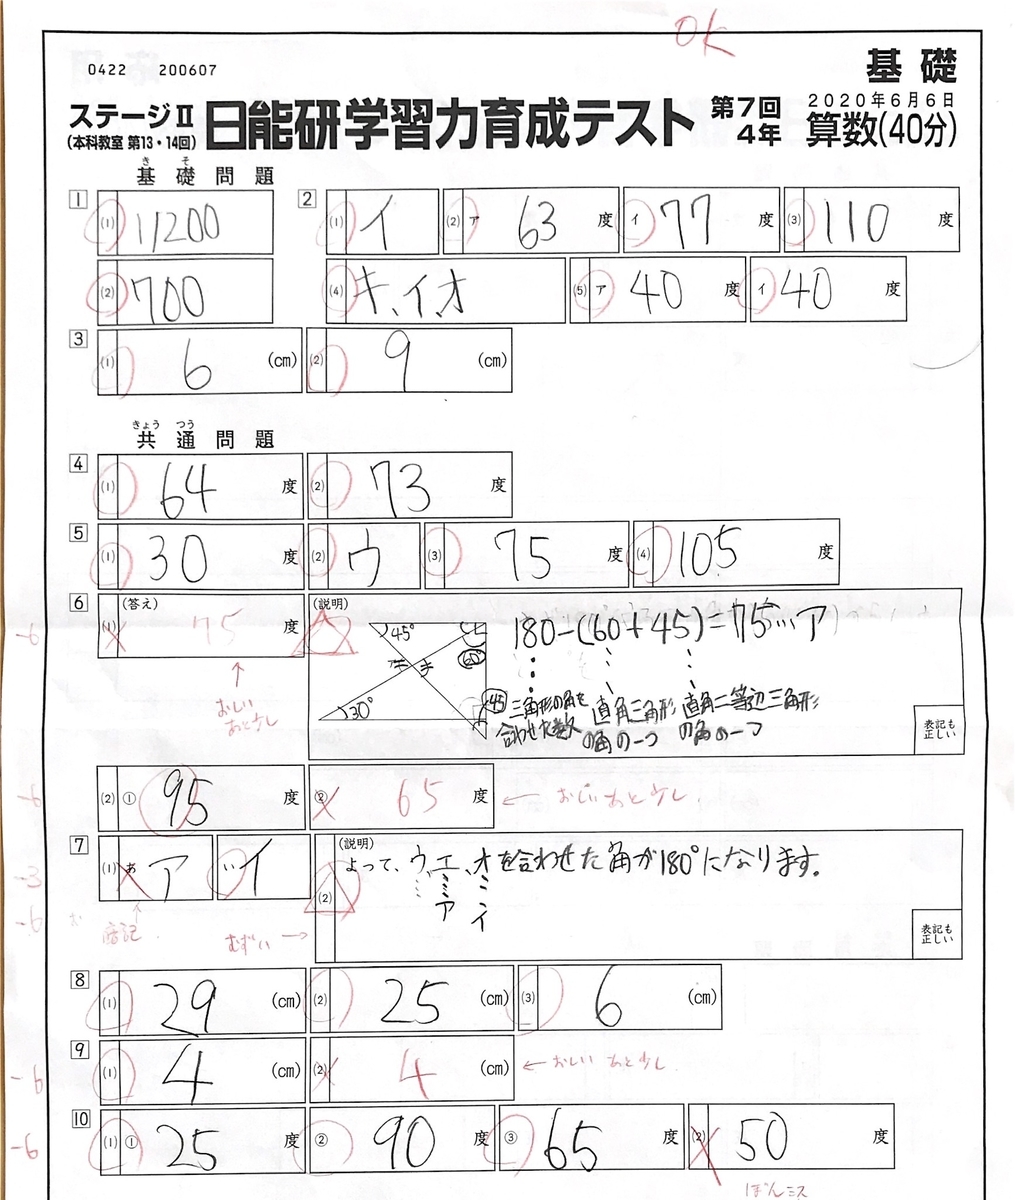 OK
0422 200607
基礎
ステージⅡ
(本科教室 第13・14回)
日能研学習力育成テスト
第7回
4年
2020年6月6日
算数(40分)
きそ
基礎問題
1 (1) 11200
2 (1) イ (2) ア 63 度 イ 77 度 (3) 110 度
(2) 700
(4) キ、イ、オ (5) ア 40 度 イ 40 度
3 (1) 6 (cm) (2) 9 (cm)
きょうつう
共通問題
4 (1) 64 度 (2) 73 度
5 (1) 30 度 (2) ウ (3) 75 度 (4) 105 度
6 (答え) (1) 75 度 (説明)
-6
45° 60° 45 30°
180-(60+45)=75…ア
三角形の角を合わせた数
直角三角形の角の一つ
直角二等辺三角形の角の一つ
表記も正しい
おしいあと少し
-6
(2) ① 95 度 ② 65 度 ← おしいあと少し
7 (1) あ ア い イ (2) (説明)
よって、ウ、エ、オを合わせた角が180°になります。
ア イ
表記も正しい
-3
-6
暗記
むずい →
8 (1) 29 (cm) (2) 25 (cm) (3) 6 (cm)
9 (1) 4 (cm) (2) 4 (cm) ← おしい あと少し
-6
10 (1) ① 25 度 ② 90 度 ③ 65 度 (2) 50 度
-6
ぼんミス